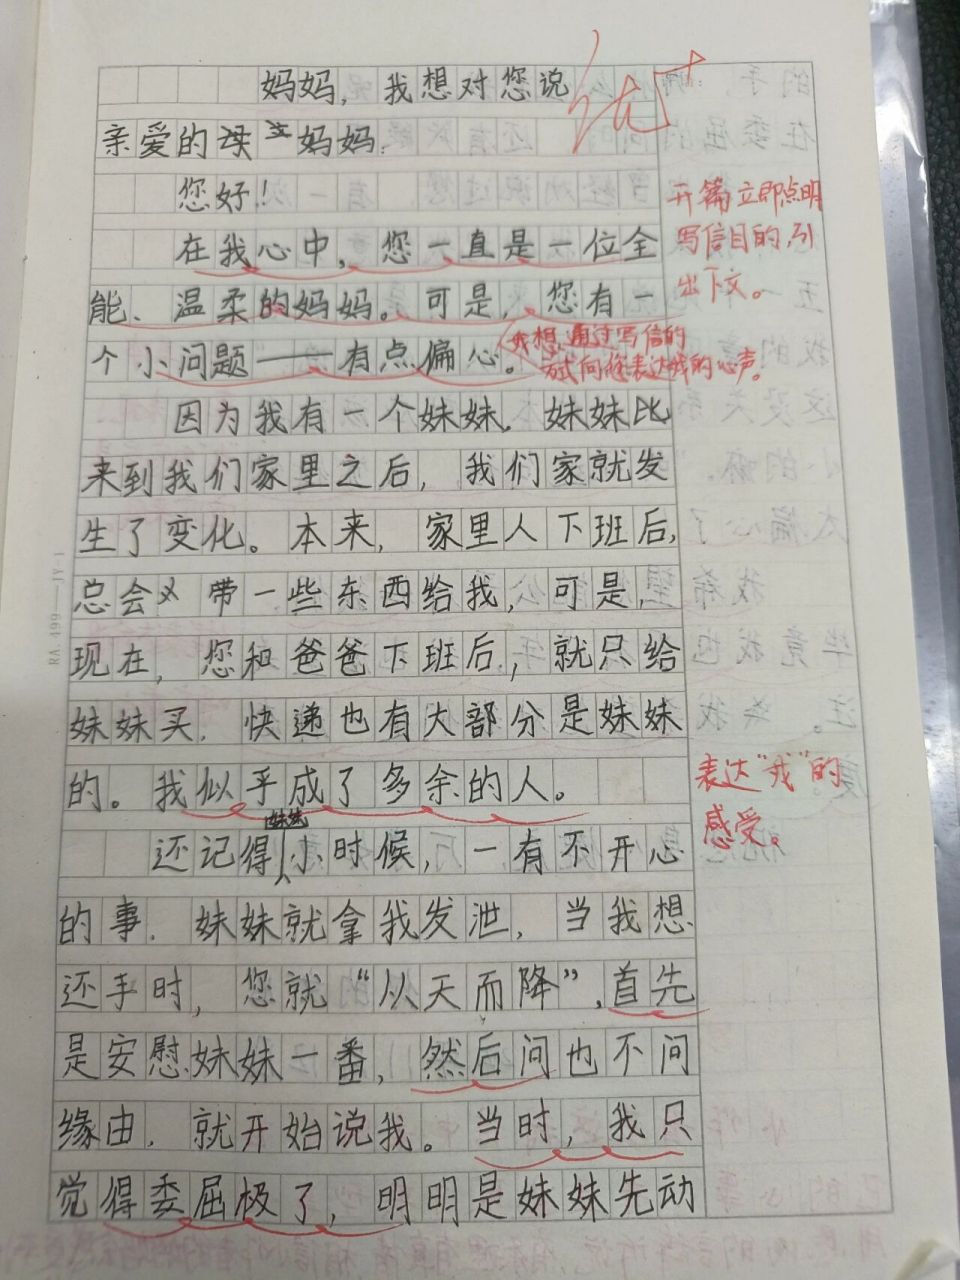 妈妈，我想对您说
优+
亲爱的妈妈：
您好！
在我心中，您一直是一位全
能、温柔的妈妈。可是，您有一
个小问题——有点偏心。
开篇立即点明
写信目的，引
出下文。
我想通过写信的
方式向您表达我的心声。
因为我有一个妹妹，妹妹
来到我们家里之后，我们家就发
生了变化。本来，家里人下班后，
总会带一些东西给我，可是，
现在，您和爸爸下班后，就只给
妹妹买，快递也有大部分是妹妹
的。我似乎成了多余的人。
表达“我”的
感受。
还记得妹妹小时候，一有不开心
的事，妹妹就拿我发泄，当我想
还手时，您就“从天而降”，首先
是安慰妹妹一番，然后问也不问
缘由，就开始说我。当时，我只
觉得委屈极了，明明是妹妹先动